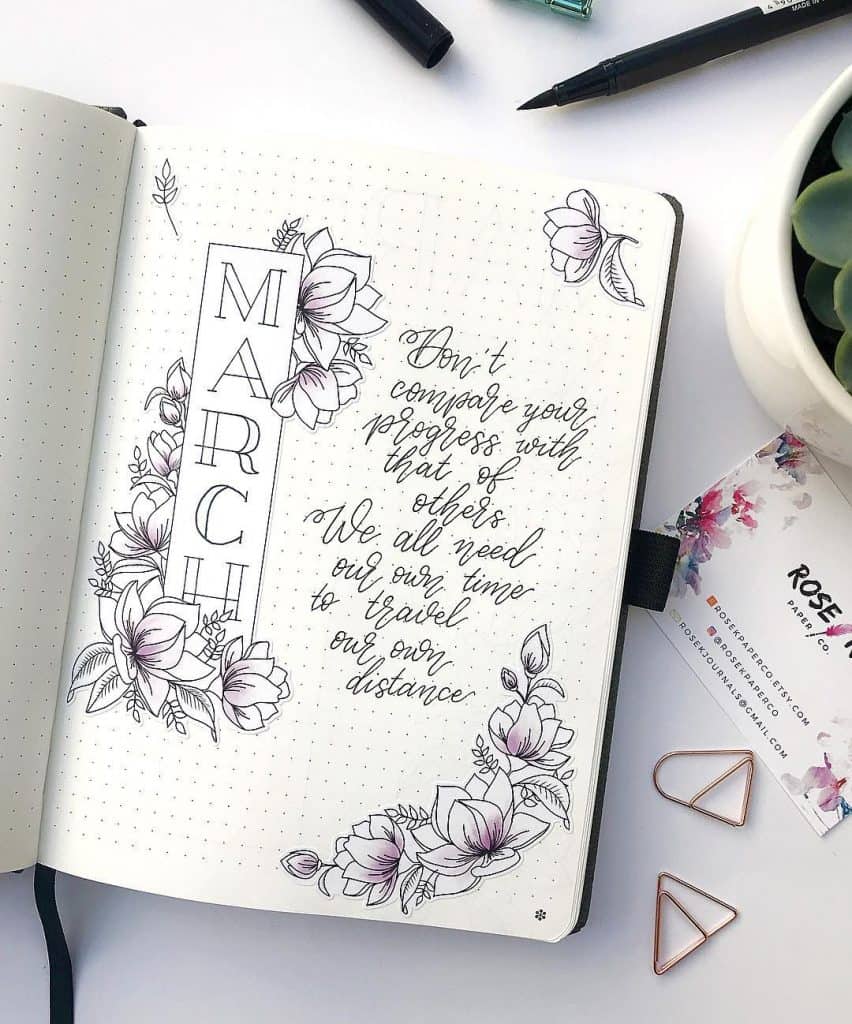 MADE IN
MARCH
Don't
compare your
progress with
that of
others
We all need
our own time
to travel
our own
distance
ROSE
PAPER CO.
ROSEKPAPERCO.ETSY.COM
@ROSEKPAPERCO
ROSEKJOURNALS@GMAIL.COM